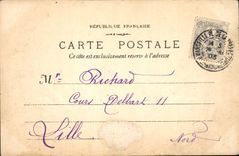 RÉPUBLIQUE FRANÇAISE
CARTE POSTALE
Ce côté est exclusivement réservé à l'adresse
Mr. Richard
Cours Delbart 11
Lille
Nord